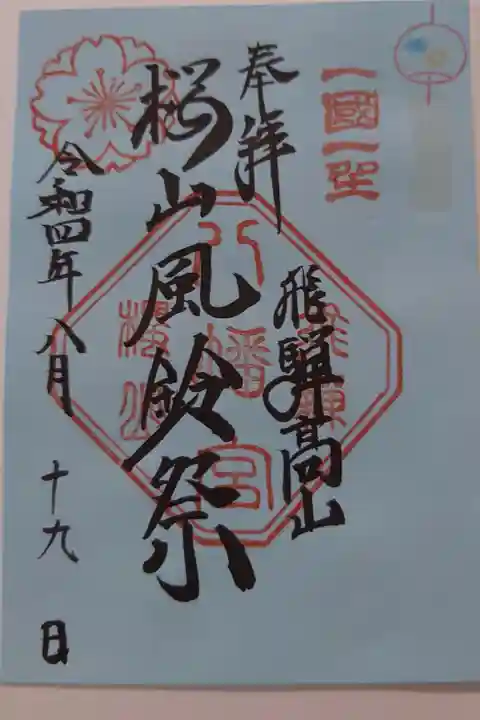 一國一社
奉拝
飛騨高山
桜山風鈴祭
飛騨
八幡宮
桜山
令和四年八月十九日